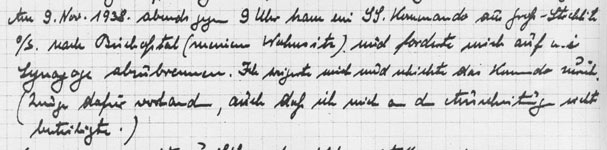 Am 9. Nov. 1938. abends gegen 9 Uhr kam ein SS. Kommando aus Groß-Strehlitz
O/S. nach Bischofstal (meinem Wohnsitz) und forderte mich auf die
Synagoge abzubrennen. Ich weigerte mich und schickte das Kommando zurück.
(Zeuge dafür vorhand, auch daß ich mich an d Ausschreitung nicht
beteiligte.)